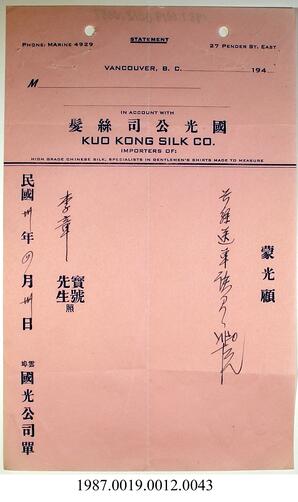 STATEMENT
PHONE: MARINE 4929
27 PENDER ST. EAST
VANCOUVER, B. C. 194
M
IN ACCOUNT WITH
髮絲司公光國
KUO KONG SILK CO.
IMPORTERS OF:
HIGH GRADE CHINESE SILK, SPECIALISTS IN GENTLEMEN'S SHIRTS MADE TO MEASURE
蒙光顧
李章
寶號
先生 照
民國卅年四月卅日
雲埠 國光公司單
1987.0019.0012.0043